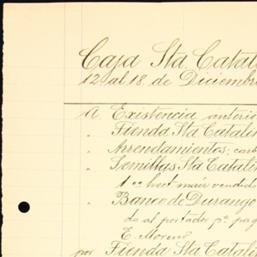 Caja Sta Catal
12 al 18 de Diciembr
A Existencia anterio
" Tienda Sta Catali
" Arrendamientos; cob
" Semillas Sta Catali
1 oo hect maiz vendid
" Banco de Durango
do al portador pa pag
E. Moreno
por Tienda Sta Catali